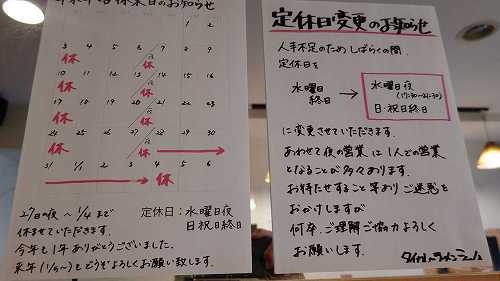 休業日のお知らせ
1 2
3 4 5 6 7 8 9
休 夜 休
10 11 12 13 14 15 16
休 夜 休
17 18 19 20 21 22 23
休 夜 休
24 25 26 27 28 29 30
休 夜 休
31 1 2 3 4 5 6
休
27日の夜 〜 1/4 まで
休ませていただきます。
今年も1年ありがとうございました。
来年(1/5〜)もどうぞよろしくお願い致します。
定休日：水曜日夜
日祝日終日
定休日変更のお知らせ
人手不足のため しばらくの間、
定休日を
水曜日
終日
→
水曜日夜
(17:30〜21:30)
日・祝日終日
に変更させていただきます。
あわせて夜の営業は1人での営業
となることが多々あります。
お待たせすること等あり ご迷惑を
おかけしますが
何卒、ご理解ご協力よろしく
お願いします。